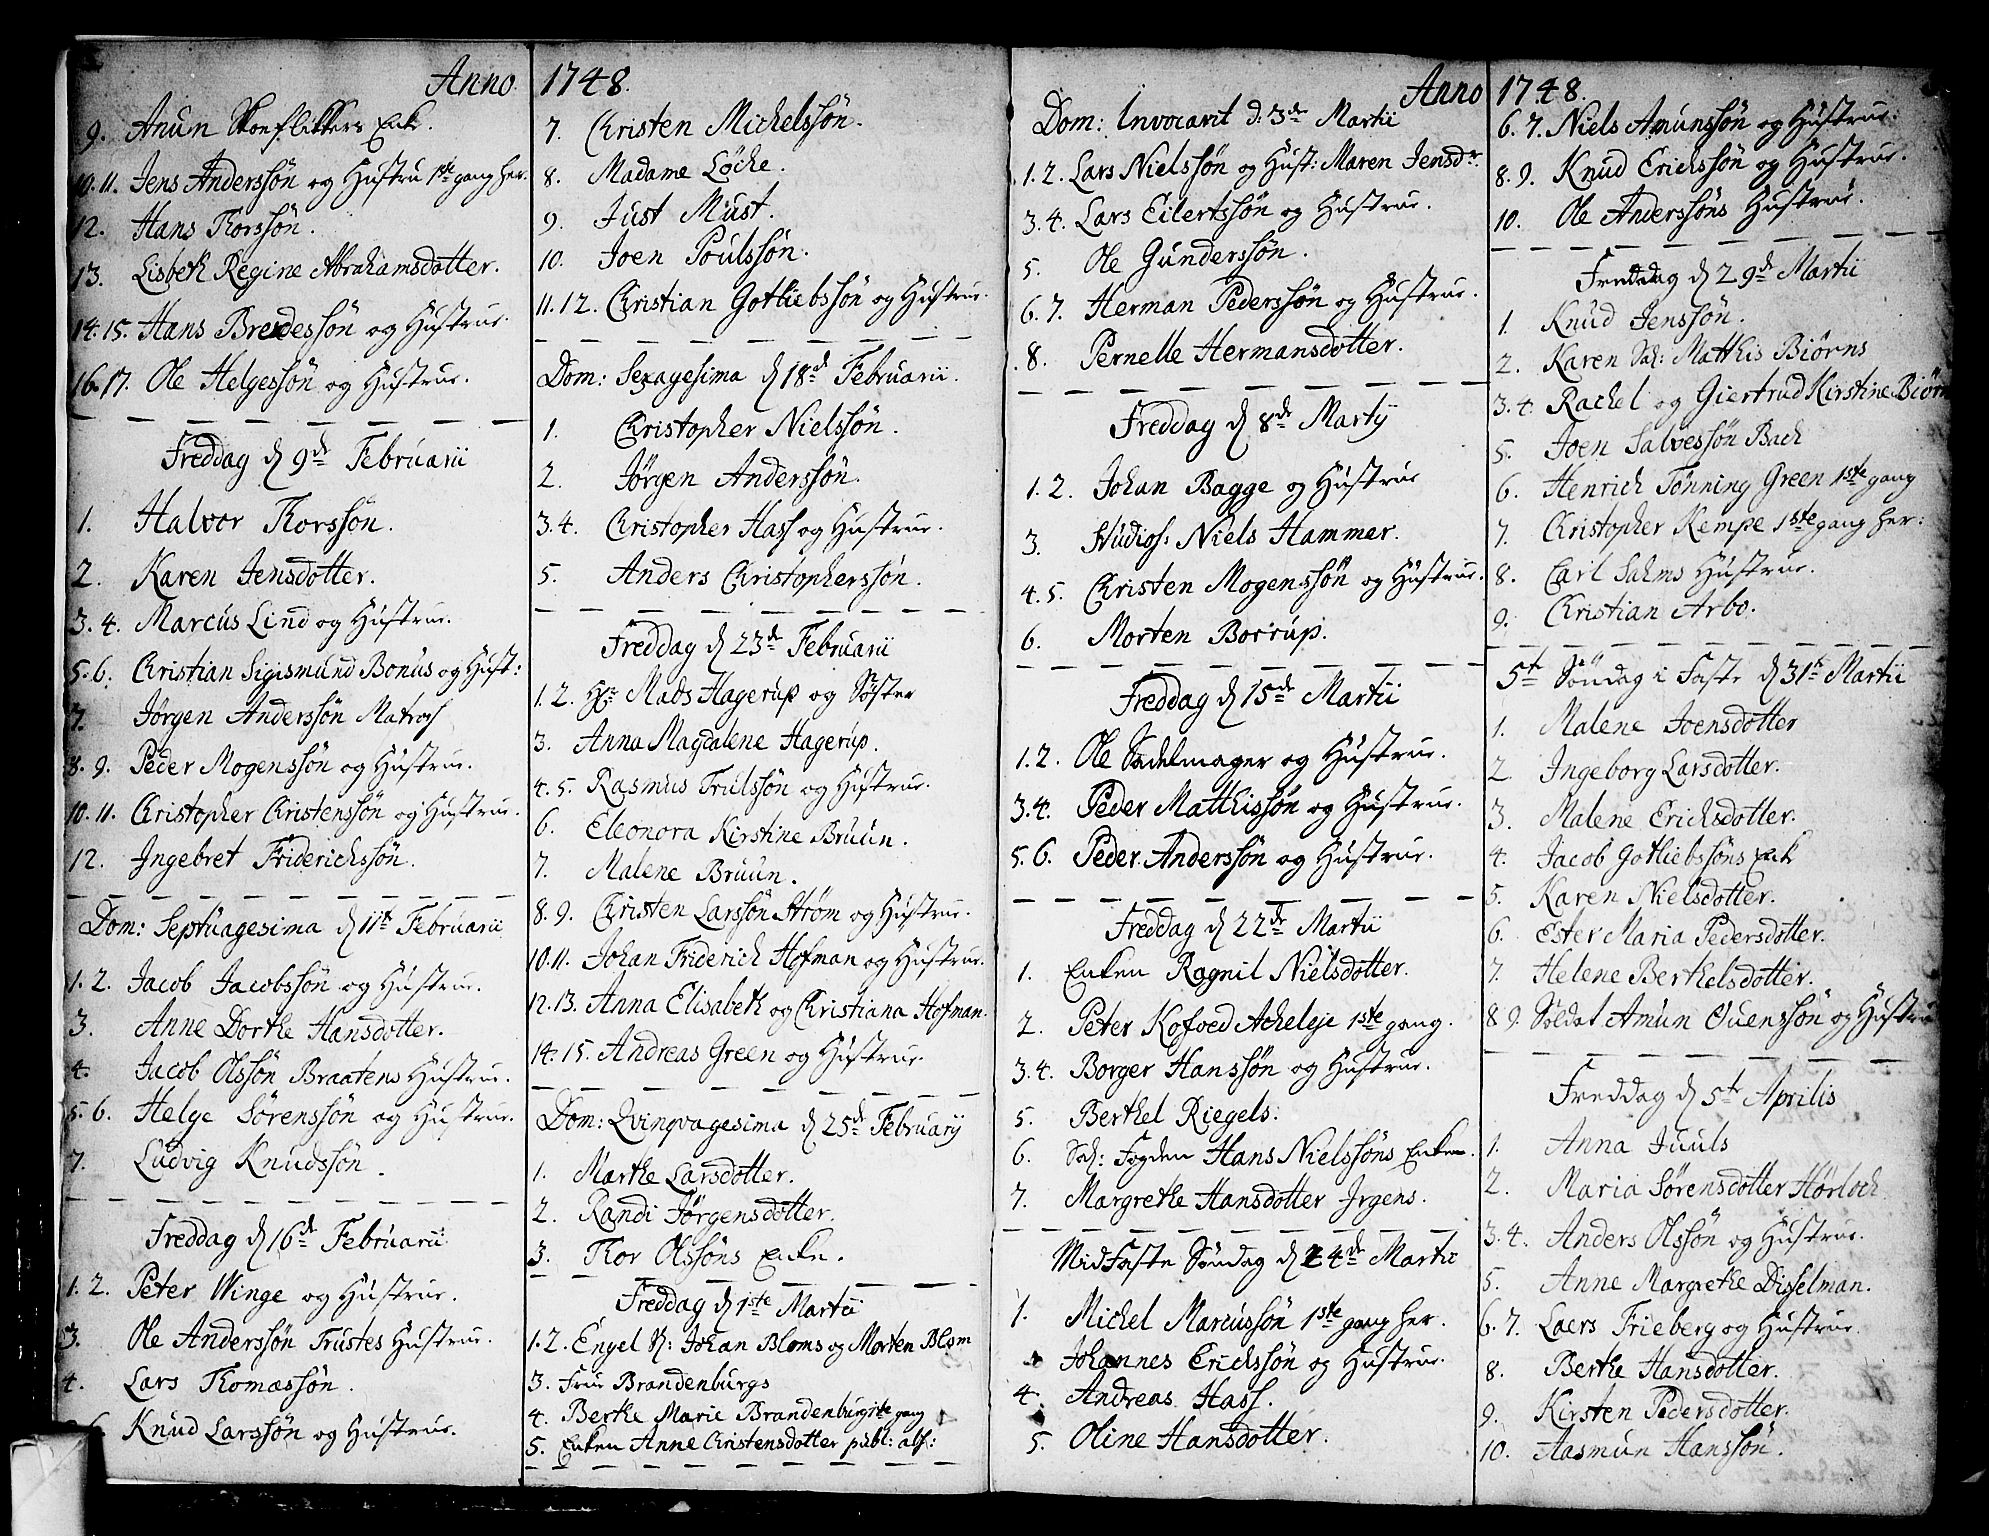 Anno 1748.
9. Anun Skoeflikkers Enke.
10. 11. Jens Anderssön og Hustru 1ste gang her.
12. Hans Thorssön.
13. Lisbeth Regine Abrahamsdotter.
14. 15. Hans Bredessön og Hustrue.
16. 17. Ole Helgessön og Hustrue.
Freddag d 9de Februarii
1. Halvor Thorssön.
2. Karen Jensdotter.
3. 4. Marcus Lind og Hustrue.
5. 6. Christian Sigismund Bonus og Hust:
7. Jörgen Anderssön Matros
8. 9. Peder Mogenssön og Hustrue.
10. 11. Christopher Christenssön og Hustrue.
12. Ingebret Friderichssön.
Dom: Septuagesima d 11te Februarii
1. 2. Jacob Jacobssön og Hustrue.
3. Anne Dorthe Hansdotter.
4. Jacob Olssön Braatens Hustrue.
5. 6. Helge Sörenssön og Hustrue.
7. Ludvig Knudssön.
Freddag d 16de Februarii
1. 2. Peter Winge og Hustrue.
3. Ole Anderssön Trustes Hustrue.
4. Lars Thomassön.
6. Knud Larssön og Hustrue.
7. Christen Michelssön.
8. Madame Löche.
9. Just Must.
10. Joen Poulssön.
11. 12. Christian Gotliebssön og Hustrue.
Dom: Sexagesima d 18de Februarii.
1. Christopher Nielssön.
2. Jörgen Anderssön.
3. 4. Christopher Hass og Hustrue.
5. Anders Christopherssön.
Freddag d 23de Februarii
1. 2. Hr: Mads Hagerup og Söster
3. Anna Magdalene Hagerup.
4. 5. Rasmus Trulssön og Hustrue.
6. Eleonora Kirstine Bruun.
7. Malene Bruun.
8. 9. Christen Larssön Ström og Hustrue.
10. 11. Johan Friderich Hofman og Hustrue.
12. 13. Anna Elisabeth og Christiana Hofman.
14. 15. Andreas Green og Hustrue.
Dom: Qvinqvagesima d 25de Februarij
1. Marthe Larsdotter.
2. Randi Jörgensdotter.
3. Thor Olssöns Enke.
Freddag d 1ste Martii
1. 2. Engel Johan Bloms og Morten Blom
3. Frue Brandenburgs
4. Berthe Marie Brandenburg 1ste gang
5. Enken Anne Christensdotter publ: abs:
Anno 1748.
Dom: Invocavit d. 3de Martii
1. 2. Lars Nielssön og Hust: Maren Jensdr.
3. 4. Lars Eilertssön og Hustrue.
5. Ole Gunderssön.
6. 7. Herman Pederssön og Hustrue.
8. Pernelle Hermansdotter.
Freddag d 8de Martij
1. 2. Johan Bagge og Hustrue
3. Studios: Niels Hammer.
4. 5. Christen Mogenssön og Hustrue.
6. Morten Borrup.
Freddag d 15de Martii
1. 2. Ole Sadelmager og Hustrue.
3. 4. Peder Matthissön og Hustrue.
5. 6. Peder Anderssön og Hustrue.
Freddag d 22de Martii
1. Enken Ragnil Nielsdotter.
2. Peter Kofoed Acheleje 1ste gang.
3. 4. Borger Hanssön og Hustrue.
5. Berthel Riegels.
6. Sal: Fogden Hans Nielssöns Enken.
7. Margrethe Hansdotter Irgens.
MidFaste Söndag d 24de Martii
1. Michel Marcussön 1ste gang her.
Johannes Erichssön og Hustrue.
4. Andreas Hass.
5. Oline Hansdotter.
6. 7. Niels Amunssön og Hustrue.
8. 9. Knud Erichssön og Hustrue.
10. Ole Anderssöns Hustrue.
Freddag d 29de Martii
1. Knud Jenssön.
2. Karen Sal: Matthis Biörns
3. 4. Rachel og Giertrud Kirstine Biörn
5. Joen Salvessön Bach
6. Henrich Tönning Green 1ste gang
7. Christopher Kempe 1ste gang her:
8. Carl Sahms Hustrue.
9. Christian Arbo.
5te Söndag i Faste d 31te Martii
1. Malene Joensdotter
2. Ingeborg Larsdotter.
3. Malene Erichsdotter.
4. Jacob Gotliebssöns Enke
5. Karen Nielsdotter.
6. Ester Maria Pedersdotter.
7. Helene Berthelsdotter.
8 9. Soldat Amun Ouenssön og Hustru
Freddag d 5te Aprilis
1. Anna Juuls
2. Maria Sörensdotter Hörloch
3. 4. Anders Olssön og Hustrue.
5. Anne Margrethe Disselman.
6. 7. Laers Frieberg og Hustrue.
8. Berthe Hansdotter.
9. Kirsten Pedersdotter.
10. Aasmun Hanssön.